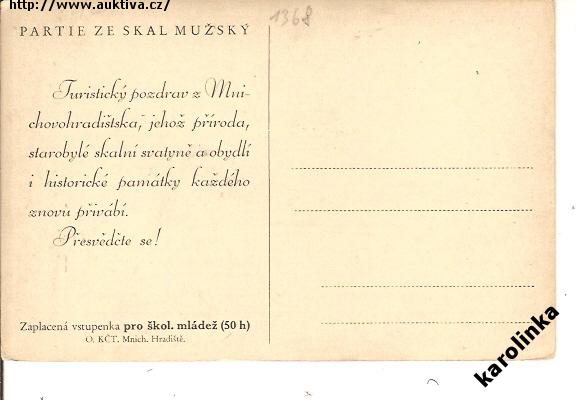 http://www.auktiva.cz/
PARTIE ZE SKAL MUŽSKÝ
1368
Turistický pozdrav z Mni-
chovohradištska, jehož příroda,
starobylé skalní svatyně a obydlí
i historické památky každého
znovu přivábí.
Přesvědčte se!
Zaplacená vstupenka pro škol. mládež (50 h)
O. KČT. Mnich. Hradiště.
karolinka